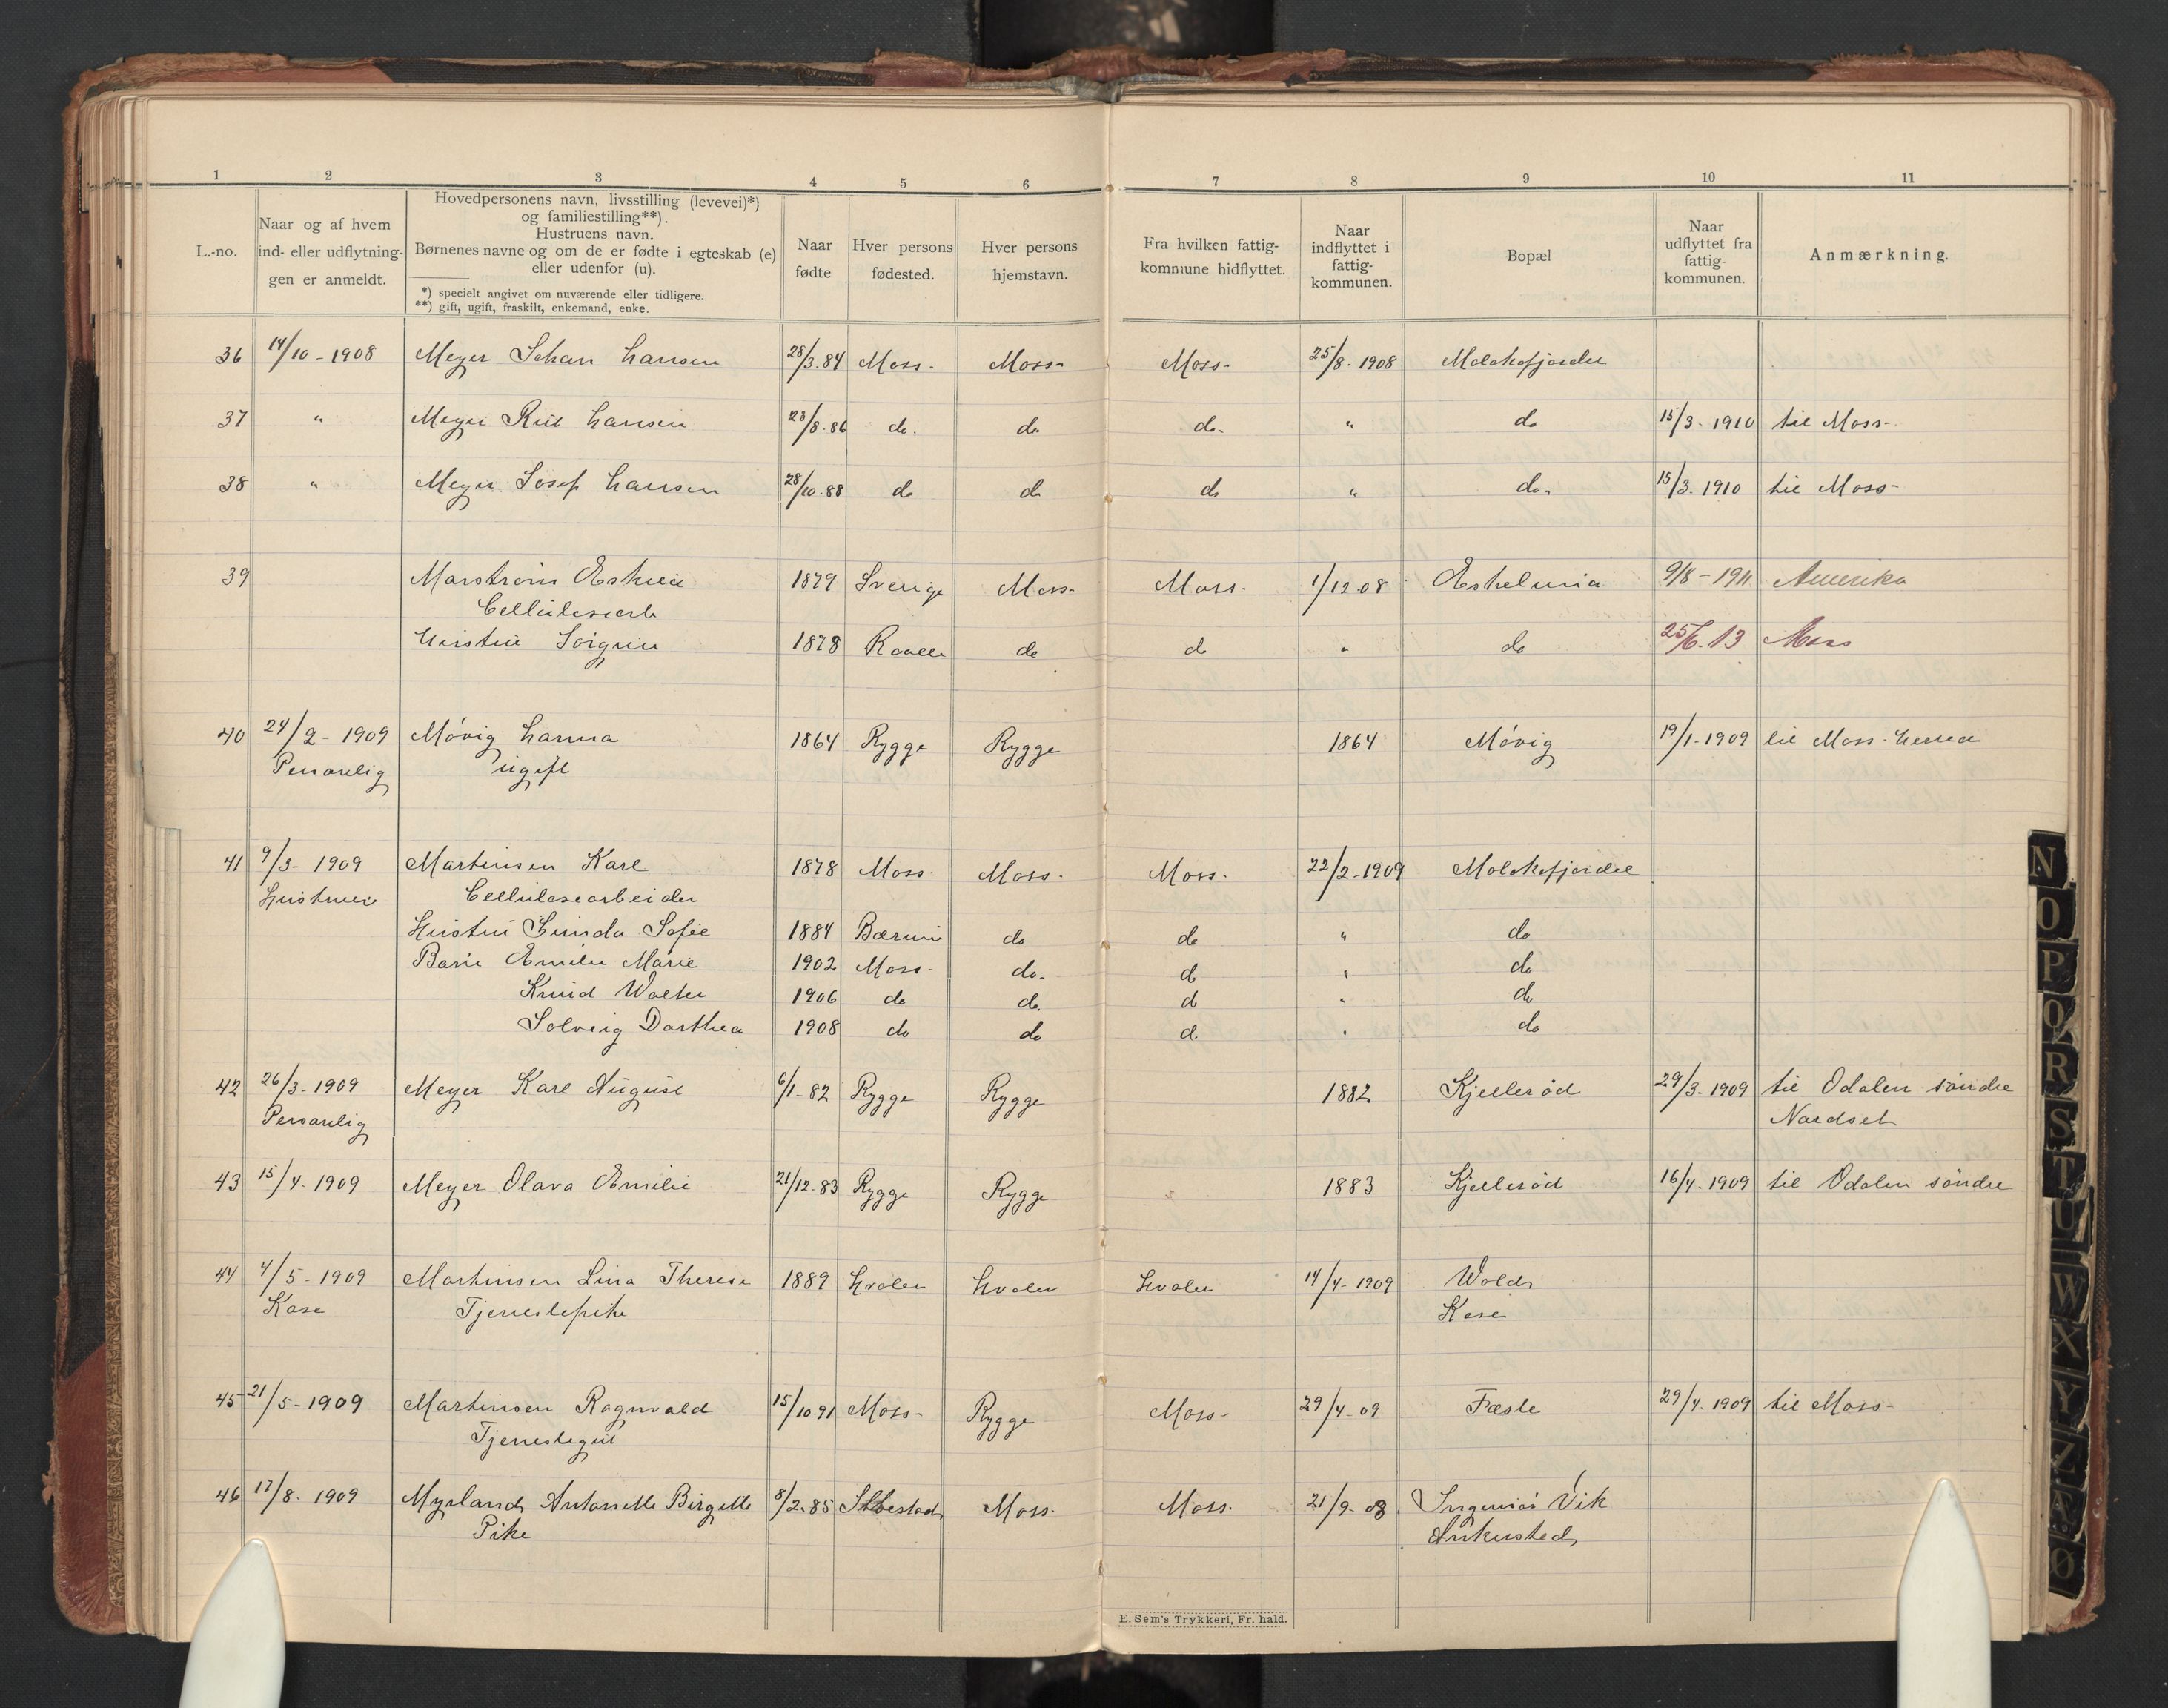 1 2 3 4 5 6 7 8 9 10 11
L.-no.
Naar og af hvem
ind- eller udflytnin-
gen er anmeldt.
Hovedpersonens navn, livsstilling (levevei)*)
og familiestilling**).
Hustruens navn.
Børnenes navne og om de er fødte i egteskab (e)
eller udenfor (u).
*) specielt angivet om nuværende eller tidligere.
**) gift, ugift, fraskilt, enkemand, enke.
Naar
fødte
Hver persons
fødested.
Hver persons
hjemstavn.
Fra hvilken fattig-
kommune hidflyttet.
Naar
indflyttet i
fattig-
kommunen.
Bopæl
Naar
udflyttet fra
fattig-
kommunen.
Anmærkning.
36 14/10 - 1908 Meyer Johan Hansen 28/3.84 Moss. Moss. Moss. 25/8. 1908
37 " Meyer Hansen 23/8.86 do. do. do. " do 15/3. 1910 til Moss.
38 " Meyer Josef Hansen 28/10.88 do do do " do. 15/3. 1910 til Moss.
39 1879 Sverige Moss. Moss. 1/12.08 9/8 - 1911 Amerika
Cellulosearb
Hustru 1878 Raade do do " do 25/6.13 Moss
40 24/2 - 1909 Møvig Hanna 1864 Rygge Rygge 1864 Møvig 19/1. 1909 til Moss.
Personlig ugift
41 9/3 - 1909 Martinsen Karl 1878 Moss. Moss. Moss. 22/2 - 1909
Hustruen Cellulosearbeider
Hustru Sofie 1884 Bærum do do " do
Barn Emilie Marie 1902 Moss. do. do " do
Knud Walter 1906 do do. do " do
Solveig Dorthea 1908 do do do " do
42 26/3. 1909 Meyer Karl August 6/1 - 82 Rygge Rygge 1882 Kjellerød 29/3. 1909 til Odalen søndre
Personlig
43 15/4. 1909 Meyer Olava Emilie 21/12.83 Rygge Rygge 1883 Kjellerød 16/4. 1909 til Odalen søndre
44 4/5 - 1909 Martinsen Lina Therese 1889 Hvaler Hvaler Hvaler 14/4 - 1909 Wold
Tjenestepike
45 21/5 - 1909 Martinsen Ragnvald 15/10.91 Moss. Rygge Moss. 29/4 - 09 Fæste 29/4. 1909 til Moss.
Tjenestegut
46 17/8. 1909 Myrland Antonette Birgitte 8/2.85 Moss. Moss. 21/9. 08 Ingeniør Vik
Pike
E. Sem's Trykkeri, Fr. hald.
N
O
P
Q
R
S
T
U
W
X
Y
Z
Æ
Ø